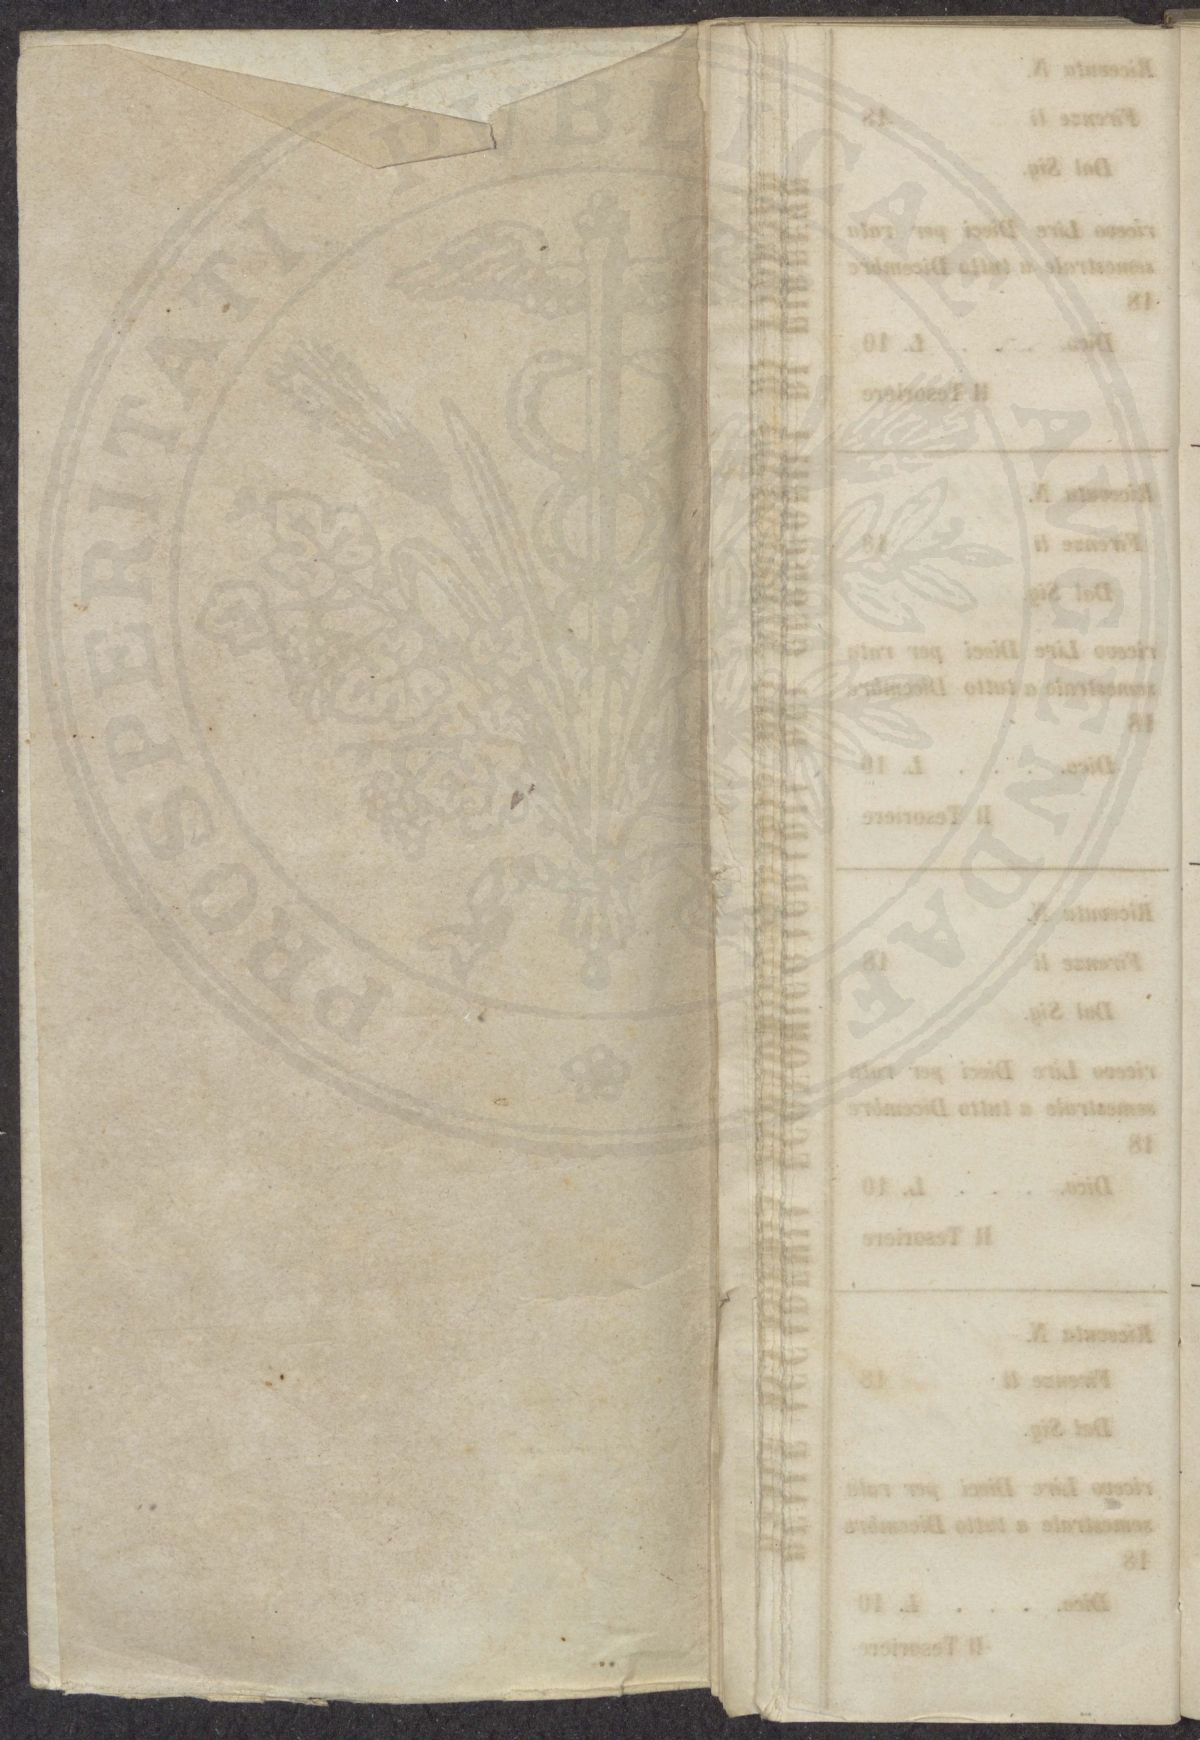 PROSPERITATI PUBLICAE AUGENDAE
DELLA R. ACCADEMIA ECONOMICO AGRARIA DEI GEORGOFILI DI FIRENZE
Ricevuta N.
Firenze li 18
Dal Sig.
ricevo Lire Dieci per rata
semestrale a tutto Dicembre
18
Dico. . . . L. 10
Il Tesoriere
Ricevuta N.
Firenze li 18
Dal Sig.
ricevo Lire Dieci per rata
semestrale a tutto Dicembre
18
Dico. . . . L. 10
Il Tesoriere
Ricevuta N.
Firenze li 18
Dal Sig.
ricevo Lire Dieci per rata
semestrale a tutto Dicembre
18
Dico. . . . L. 10
Il Tesoriere
Ricevuta N.
Firenze li 18
Dal Sig.
ricevo Lire Dieci per rata
semestrale a tutto Dicembre
18
Dico. . . . L. 10
Il Tesoriere